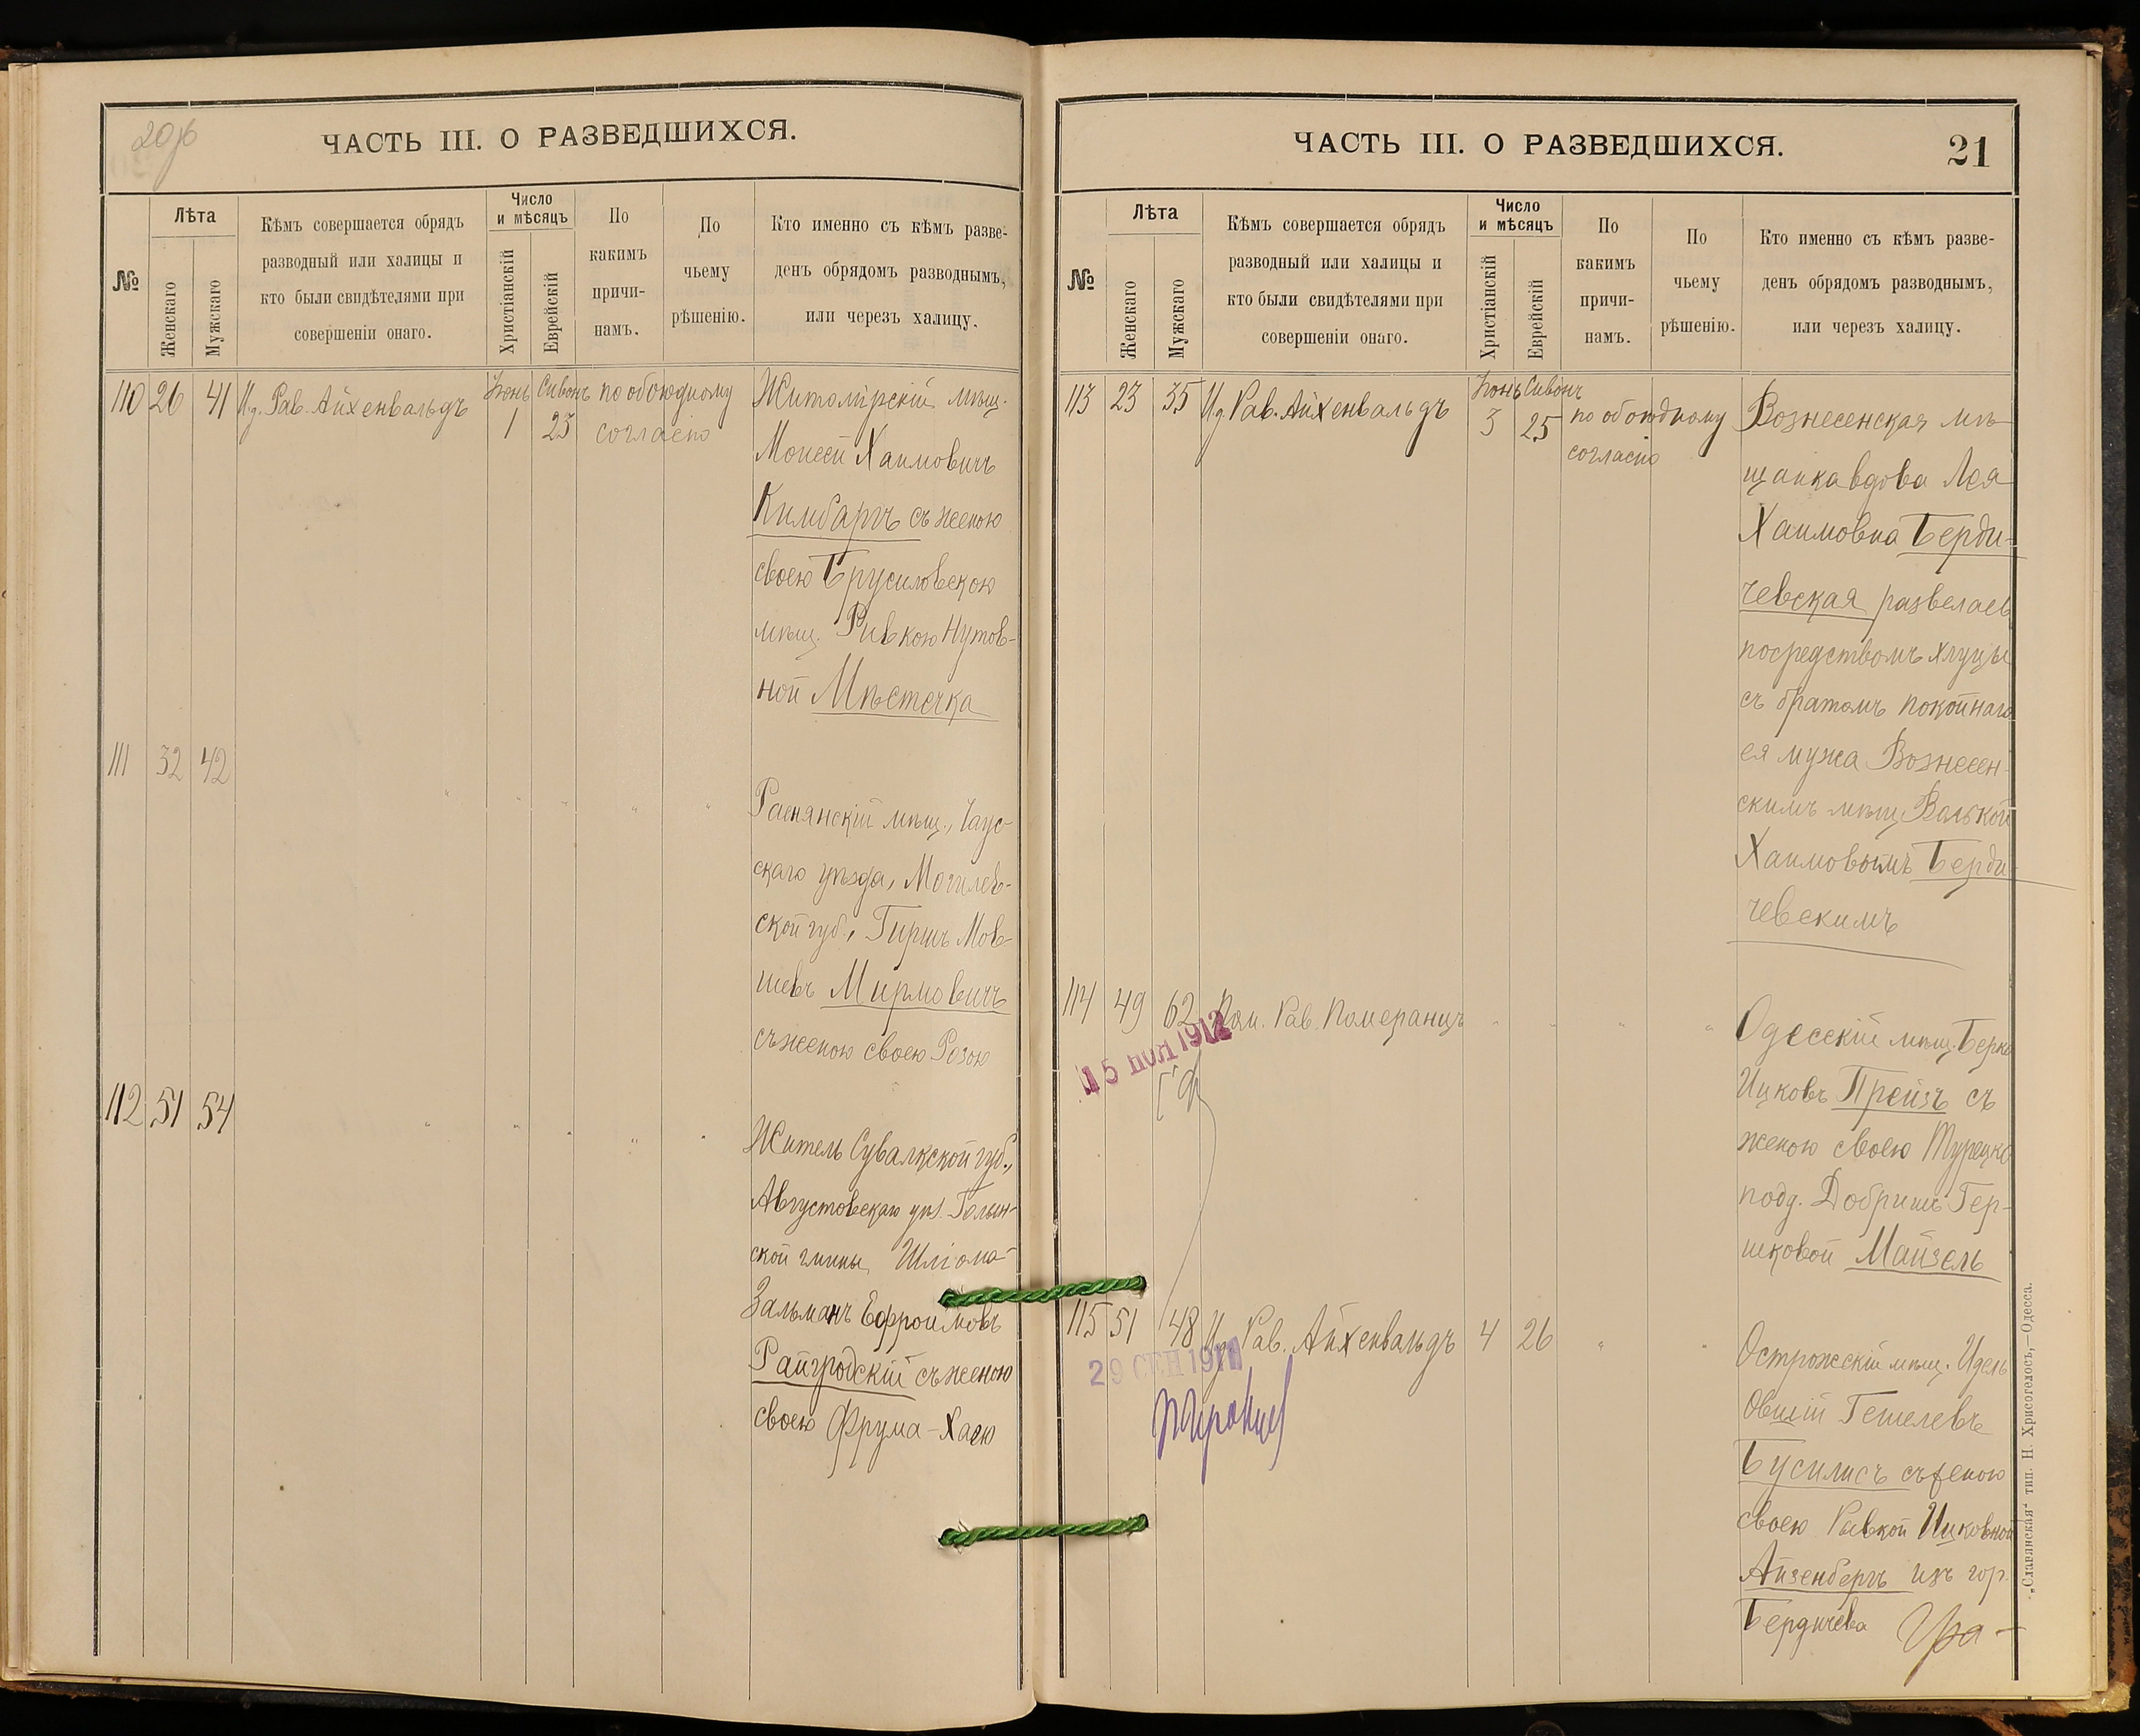 20 об
ЧАСТЬ III. О РАЗВЕДШИХСЯ.
№
Лѣта
Женскаго
Мужскаго
Кѣмъ совершается обрядъ
разводный или халицы и
кто были свидѣтелями при
совершеніи онаго.
Число
и мѣсяцъ
Христіанскій
Еврейскій
По
какимъ
причи-
намъ.
По
чьему
рѣшенію.
Кто именно съ кѣмъ разве-
денъ обрядомъ разводнымъ,
или черезъ халицу.
110 26 41 И.д. Рав. Айхенвальдъ Іюнь 1 Сивонъ 23 по обоюдному
согласію
Житомірскій мѣщ.
Моисей Хаимовичъ
Кимбаргъ съ женою
своею Брусиловскою
мѣщ. Ривкою Нутов-
ной Мѣстечка
111 32 42 " " " " "
Раснянскій мѣщ., Чаус-
скаго уѣзда, Могилев-
ской губ., Гиршъ Мов-
шевъ Мирмовичъ
съ женою своею Розою
112 51 54 " " " " "
Житель Сувалкской губ.,
Августовскаго уѣз. Голын-
ской гмины, Шліома-
Зальманъ Ефроимовъ
Райгродскій съ женою
своею Фрума-Хаею
ЧАСТЬ III. О РАЗВЕДШИХСЯ.
21
№
Лѣта
Женскаго
Мужскаго
Кѣмъ совершается обрядъ
разводный или халицы и
кто были свидѣтелями при
совершеніи онаго.
Число
и мѣсяцъ
Христіанскій
Еврейскій
По
какимъ
причи-
намъ.
По
чьему
рѣшенію.
Кто именно съ кѣмъ разве-
денъ обрядомъ разводнымъ,
или черезъ халицу.
113 23 35 И.д. Рав. Айхенвальдъ Іюнь 3 Сивонъ 25 по обоюдному
согласію
Вознесенская мѣ-
щанка вдова Лея
Хаимовна Берди-
чевская развелась
посредствомъ хлуцы
съ братомъ покойнаго
ея мужа Вознесен-
скимъ мѣщ. Волькой
Хаимовымъ Берди-
чевскимъ
114 49 62 Пом. Рав. Померанцъ " " " "
15 НОЯ 1912
Одесскій мѣщ. Берко
Ицковъ Прейзъ съ
женою своею Турецко
подд. Добришъ Гер-
шковой Майзель
115 51 48 И.д. Рав. Айхенвальдъ 4 26 " "
29 СЕН 1911
Острожскій мѣщ. Идель
Овшій Гешелевъ
Бусилисъ съ женою
своею Ривкой Ицковной
Айзенбергъ изъ гор.
Бердичева
„Славянская“ тип. Н. Хрисогелосъ,—Одесса.